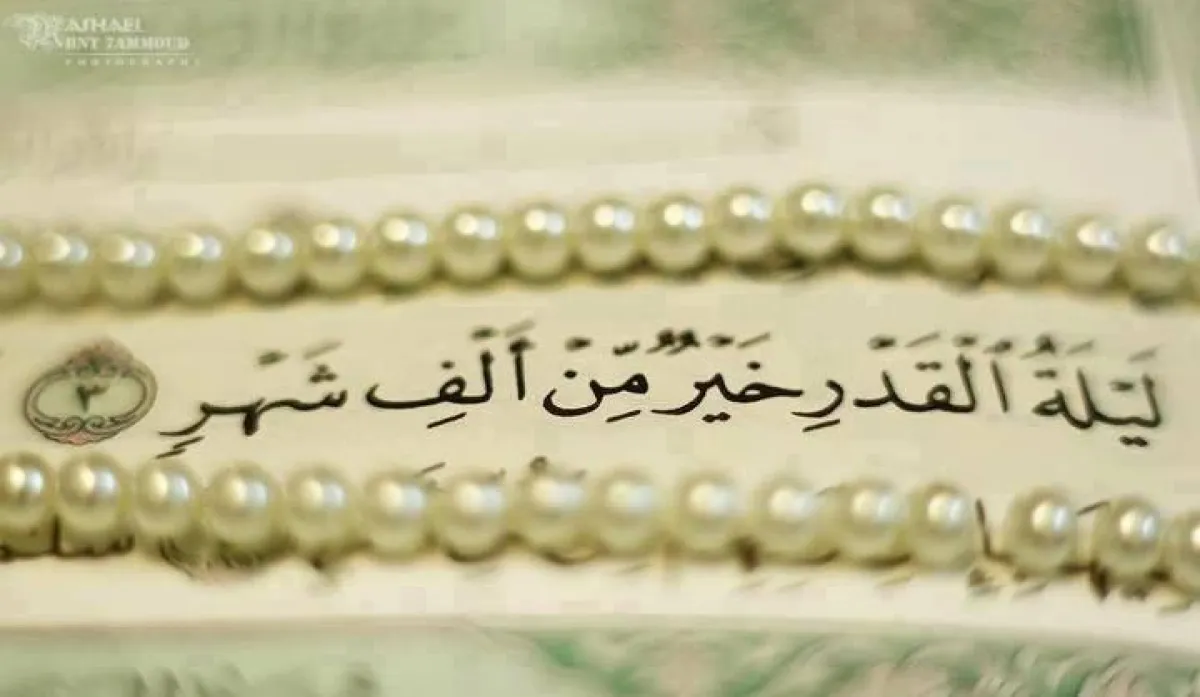 ASHAEL
BNT ZAMMOUD
PHOTOGRAPHY
لَيْلَةُ ٱلْقَدْرِ خَيْرٌ مِّنْ أَلْفِ شَهْرٍ ٣